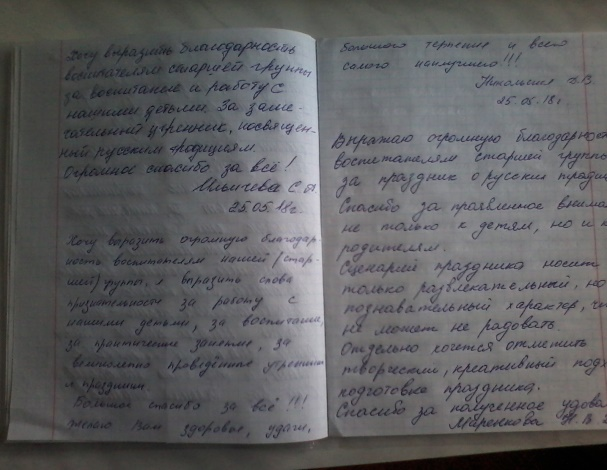 Хочу выразить благодарность
воспитателям старшей группы
за воспитание и работу с
нашими детьми. За заме-
чательный утренник, посвящен-
ный русским традициям.
Огромное спасибо за всё!
Ильичева С.
25.05.18г.
Хочу выразить огромную благодар-
ность воспитателям нашей (стар-
шей) группы, и выразить слова
признательности за работу с
нашими детьми, за воспитание,
за практичные занятие, за
великолепно проведённые утренники
и праздники.
Большое спасибо за всё!!!
желаю Вам здоровье, удачи,
большого терпения и всего
самого наилучшего!!!
25.05.18г.
Выражаю огромную благодарнос
воспитателям старшей группы
за праздник о русских традиц
Спасибо за проявленное внима
не только к детям, но и к
родителям.
Сценарий праздника носит
только развлекательный, но
познавательный характер, чт
не может не радовать
Отдельно хочется отметить
творческий, креативный подх
подготовке праздника.
Спасибо за полученное удово
Миренкова